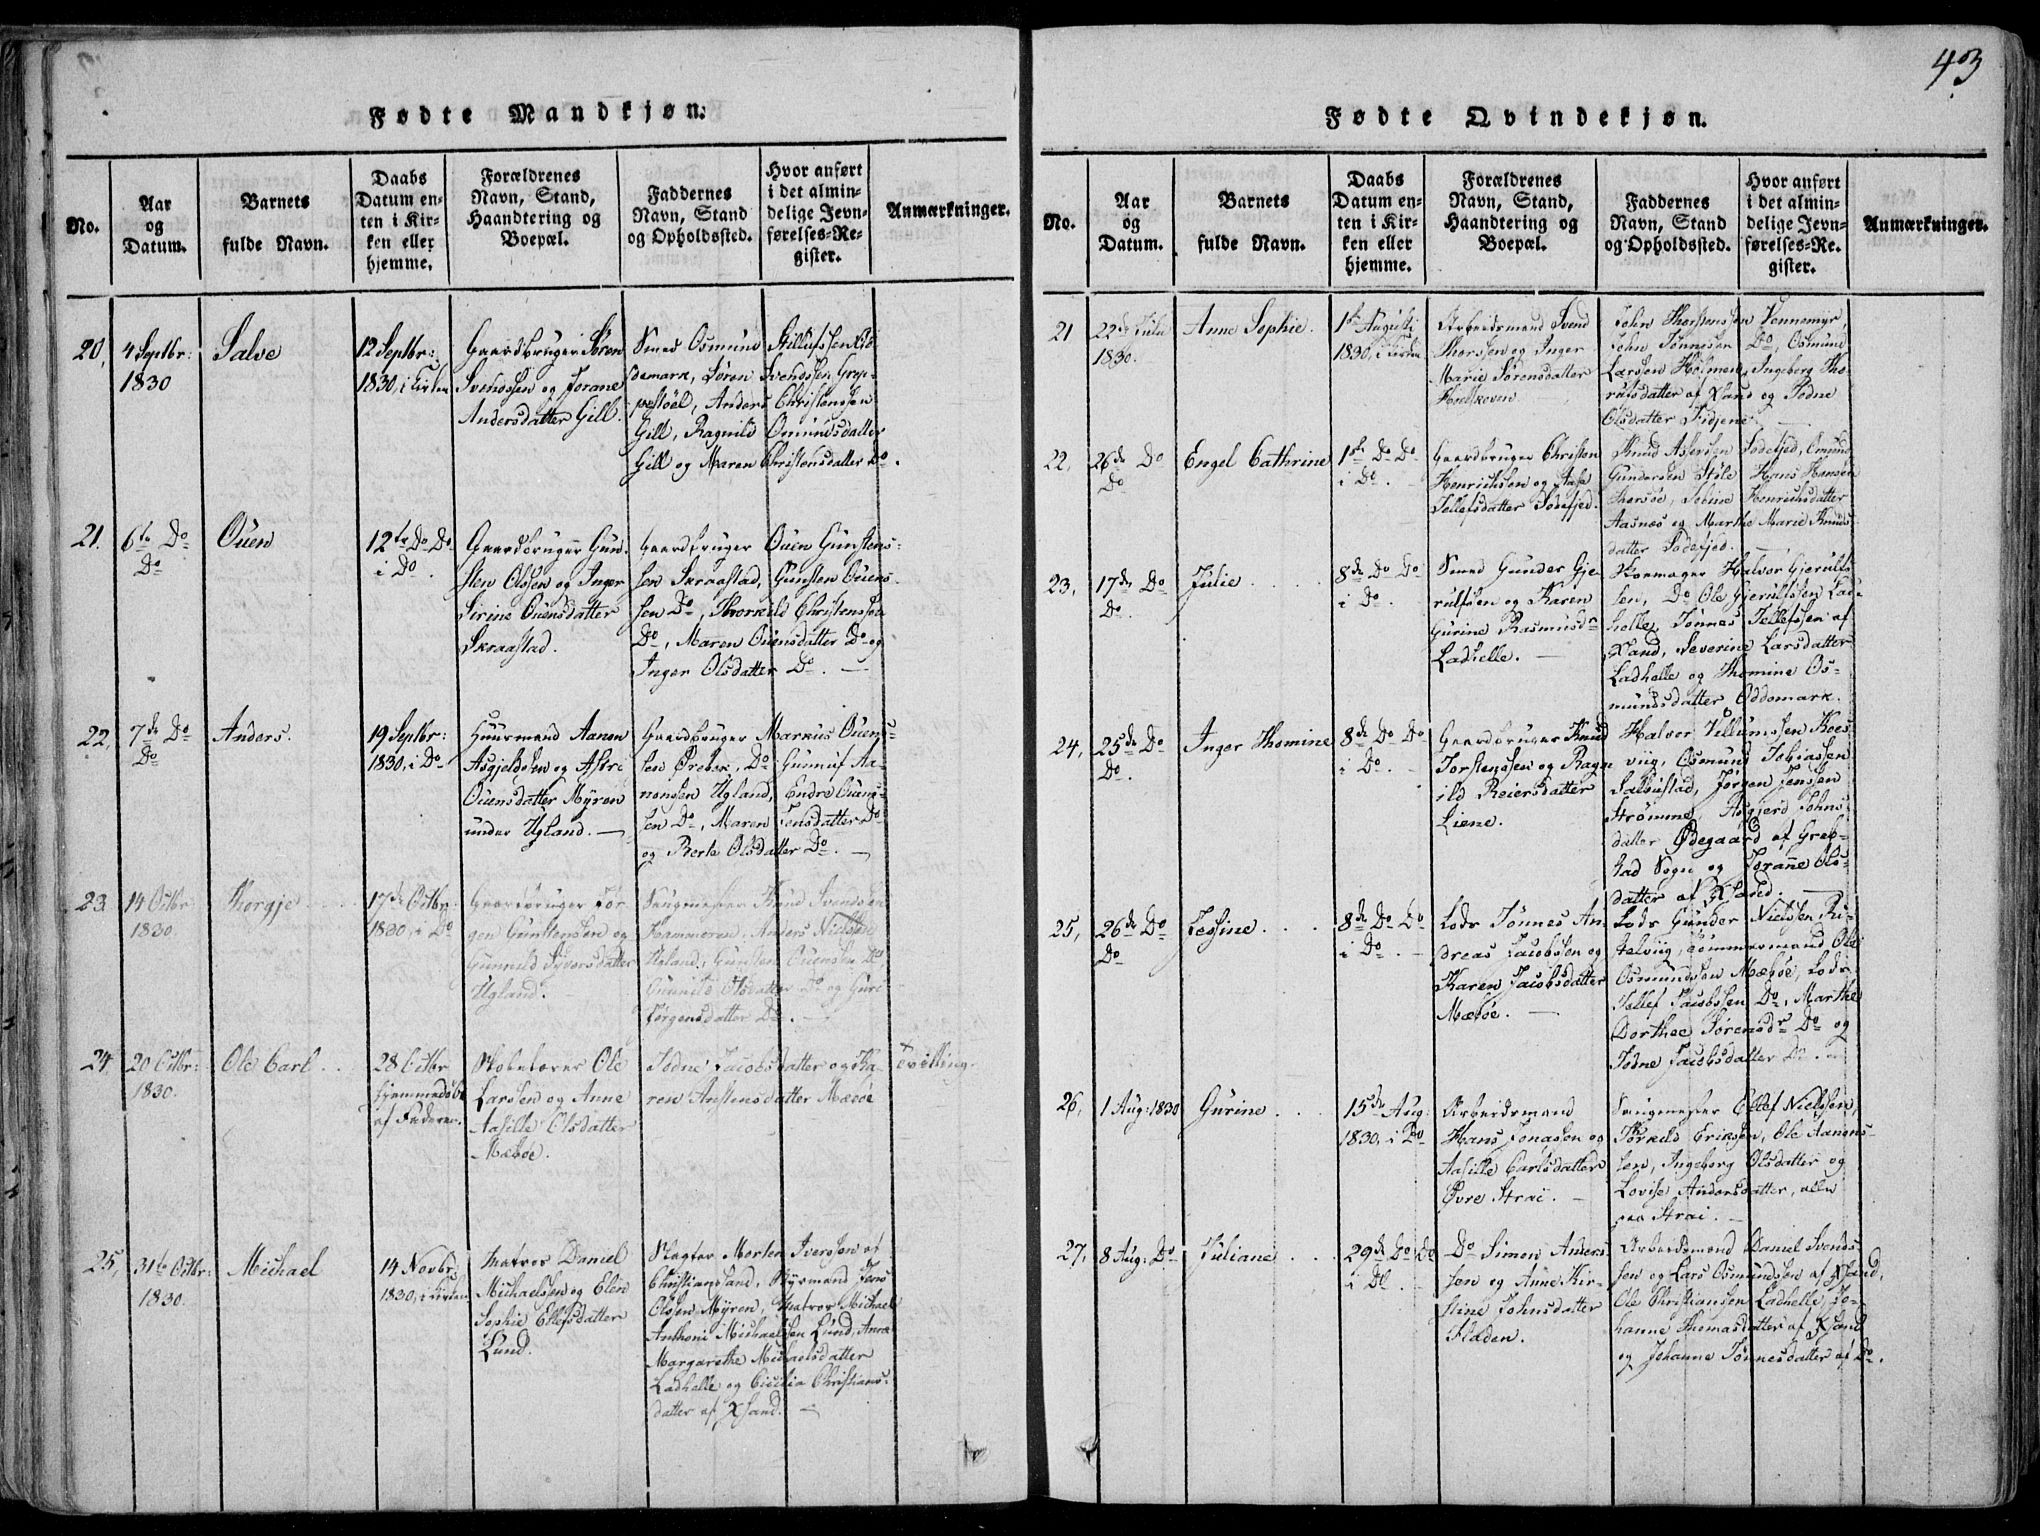 43
Fødte Mandkjøn.
No.
Aar
og
Datum.
Barnets
fulde Navn.
Daabs
Datum en-
ten i Kir-
ken eller
hjemme.
Forældrenes
Navn, Stand,
Haandtering og
Boepæl.
Faddernes
Navn, Stand
og Opholdssted.
Hvor anført
i det almin-
delige Jevn-
førelses-Re-
gister.
Anmærkninger.
20,
4 Septbr:
1830
Salve
12 Septbr:
1830, i Kirken
Gaardbruger Søren
Svendssen og Jorane
Andersdatter Gill.
Smed Osmund Stillufssen Od-
demark, Søren Svendssen Grep-
pestøel, Anders Christenssen
Gill, Ragnild Omundsdatter
Gill og Maren Christensdatter Do.
21.
6te Do
Do
Ouen
12te Do Do
i Do.
Gaardbruger Gun-
sten Olssen og Inger
Serine Ouensdatter
Skraastad.
Gaardbruger Ouen Gunstens-
sen Skraastad, Gunsten Ouens-
sen Do, Thorkild Christenssen
Do, Maren Ouensdatter Do og
Inger Olsdatter Do. —
22,
7de Do
Do
Anders.
19 Septbr:
1830, i Do
Huusmand Aanen
Asgjeldsen og Astri
Ouensdatter Myren
under Ugland. —
Gaardbruger Markus Ouens-
sen Ørebek, Do Gunnuf Aa-
nonsen Ugland, Endre Ouens-
sen Do, Maren Jensdatter Do
og Berte Olsdatter Do. —
23.
14 Octbr
1830.
Thorgje
17de Octbr
1830, i Do
Gaardbruger Jør-
gen Gunstensen og
Gunnild Syversdatter
Ugland.
Saugmester Knud Svendsen
Hammeren, Anders Nielsen
Ugland, Gunsten Ouensen Do,
Gunnild Olsdatter Do og Guri
Jørgensdatter Do. —
24.
20 Octbr:
1830.
Ole Carl
28 Octbr
hjemmedøbt
af Faderen.
Skolelærer Ole
Larssen og Anne
Aasille Olsdatter
Mæbøe.
Todne Jacobsdatter og Ka-
ren Anstensdatter Mæbøe
Tvilling.
25,
31te Octbr:
1830.
Michael
14 Novbr:
1830, i Kirken
Matros Daniel
Michaelssen og Elen
Sophie Ellefsdatter
Lund.
Slagter Morten Iverssen af
Christiansand, Styrmand Jens
Olssen Myren, Matros Michael
Anthoni Michaelssen Lund, Anne
Margarethe Michaelsdatter
Ladhelle og Cicilia Christians-
datter af Xsand. —
Fødte Qvindekjøn.
No.
Aar
og
Datum.
Barnets
fulde Navn.
Daabs
Datum en-
ten i Kir-
ken eller
hjemme.
Forældrenes
Navn, Stand,
Haandtering og
Boepæl.
Faddernes
Navn, Stand
og Opholdssted.
Hvor anført
i det almin-
delige Jevn-
førelses-Re-
gister.
Anmærkninger.
21
22de Julii
1830.
Anne Sophie.
1ste Augusti
1830, i Kirken
Arbeidsmand Svend
Thorssen og Inger
Marie Sørensdatter
John Thorstenssen Vennemyr,
John Tønnesen Do, Osmund
Larssen Holmen, Ingeborg Tho-
rufsdatter af Xsand og Todne
Olsdatter Fidjene
22,
26de Do
Do
Engel Cathrine
1ste Do Do
i Do.
Gaardbruger Christen
Henrichssen og Aase
Tellefsdatter Sodefjed.
Knud Assersen Sodefjed, Omund
Gundersen Støle, Hans Hansen
Thorsøe, Serine Henrichsdatter
Aasnæs og Marthe Marie Knuds-
datter Sodefjed.
23,
17de Do
Do.
Julie
8de Do Do
i Do.
Smed Gunder Gje-
rulfsen og Karen
Gurine Rasmusdr
Ladhelle. —
Skomager Halvor Gjerulfs-
sen, Do Ole Gjerulfssen Lad-
helle, Tønnes Tellefssen af
Xsand, Severine Larsdatter
Ladhelle og Thomine Os-
mundsdatter Oddomark.
24,
25de Do
Do.
Inger Thomine
8de Do Do
i Do.
Gaardbruger Knud
Torstenssen og Ragn
ild Reiersdatter
Liene.
Halvor Villumssen Koes-
viig, Osmund Tobiassen
Salbustad, Jørgen Jenssen
Strømme, Asgjerd Johns-
datter Ødegaard af Greb-
stad Sogn og Joranne Ols-
datter af Xsand. —
25,
26de Do
Do
Jessine
8de Do Do
i Do.
Lods Tønnes An-
dreas Jacobssen og
Karen Jacobsdatter
Mæbøe. —
Lods Gunder Nielssen Ki-
kelviig, Tømmermand Ole
Osmundssen Mæbøe, Lods
Tellef Jacobssen Do, Marthe
Dorthea Sørensdr Do og
Todne Jacobsdatter Do. —
26,
1 Aug: 1830
Gurine
15de Aug:
1830, i Do
Arbeidsmand
Hans Jonassen og
Aasille Carlsdatter
Øvre Strai. —
Saugmester Ellef Nielssen,
Torkild Erikssen, Ole Aanons-
sen, Ingeborg Olsdatter og
Lovise Andersdatter, alle
paa Strai. —
27,
8 Aug: Do
Juliane
29de Do Do
i Do.
Do Simon Anders-
sen og Anne Kir-
stine Johnsdatter
Fladen.
Arbeidsmand Daniel Svends-
sen og Lars Osmundsen af Xsand,
Ole Christiansen Ladhelle, Jo-
hanne Thomasdatter af Xsand
og Johanne Tønnesdatter af Do.